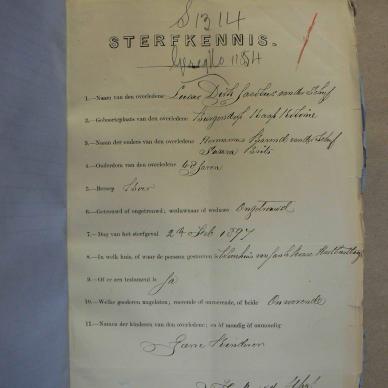 S 1314
STERFKENNIS.
1.—Naam van den overledene: Dirk Jacobus van der Schyf
2.—Geboorteplaats van den overledene: Burgersdorp Kaap Kolonie
3.—Namen der ouders van den overledene: Hermanus Barend van der Schyf
Brits
4.—Ouderdom van den overledene: 68 Jaren
5.—Beroep Boer
6.—Getrouwd of ongetrouwd; weduwnaar of weduwe Ongetrouwd
7.—Dag van het sterfgeval 24 Feb 1897
8.—In welk huis, of waar de persoon gestorven is Woonhuis van
9.—Of er een testament is Ja
10.—Welke goederen nagelaten; roerende of onroerende, of beide Onroerende
11.—Namen der kinderen van den overledene; en óf mondig óf onmondig
Geene Kinderen